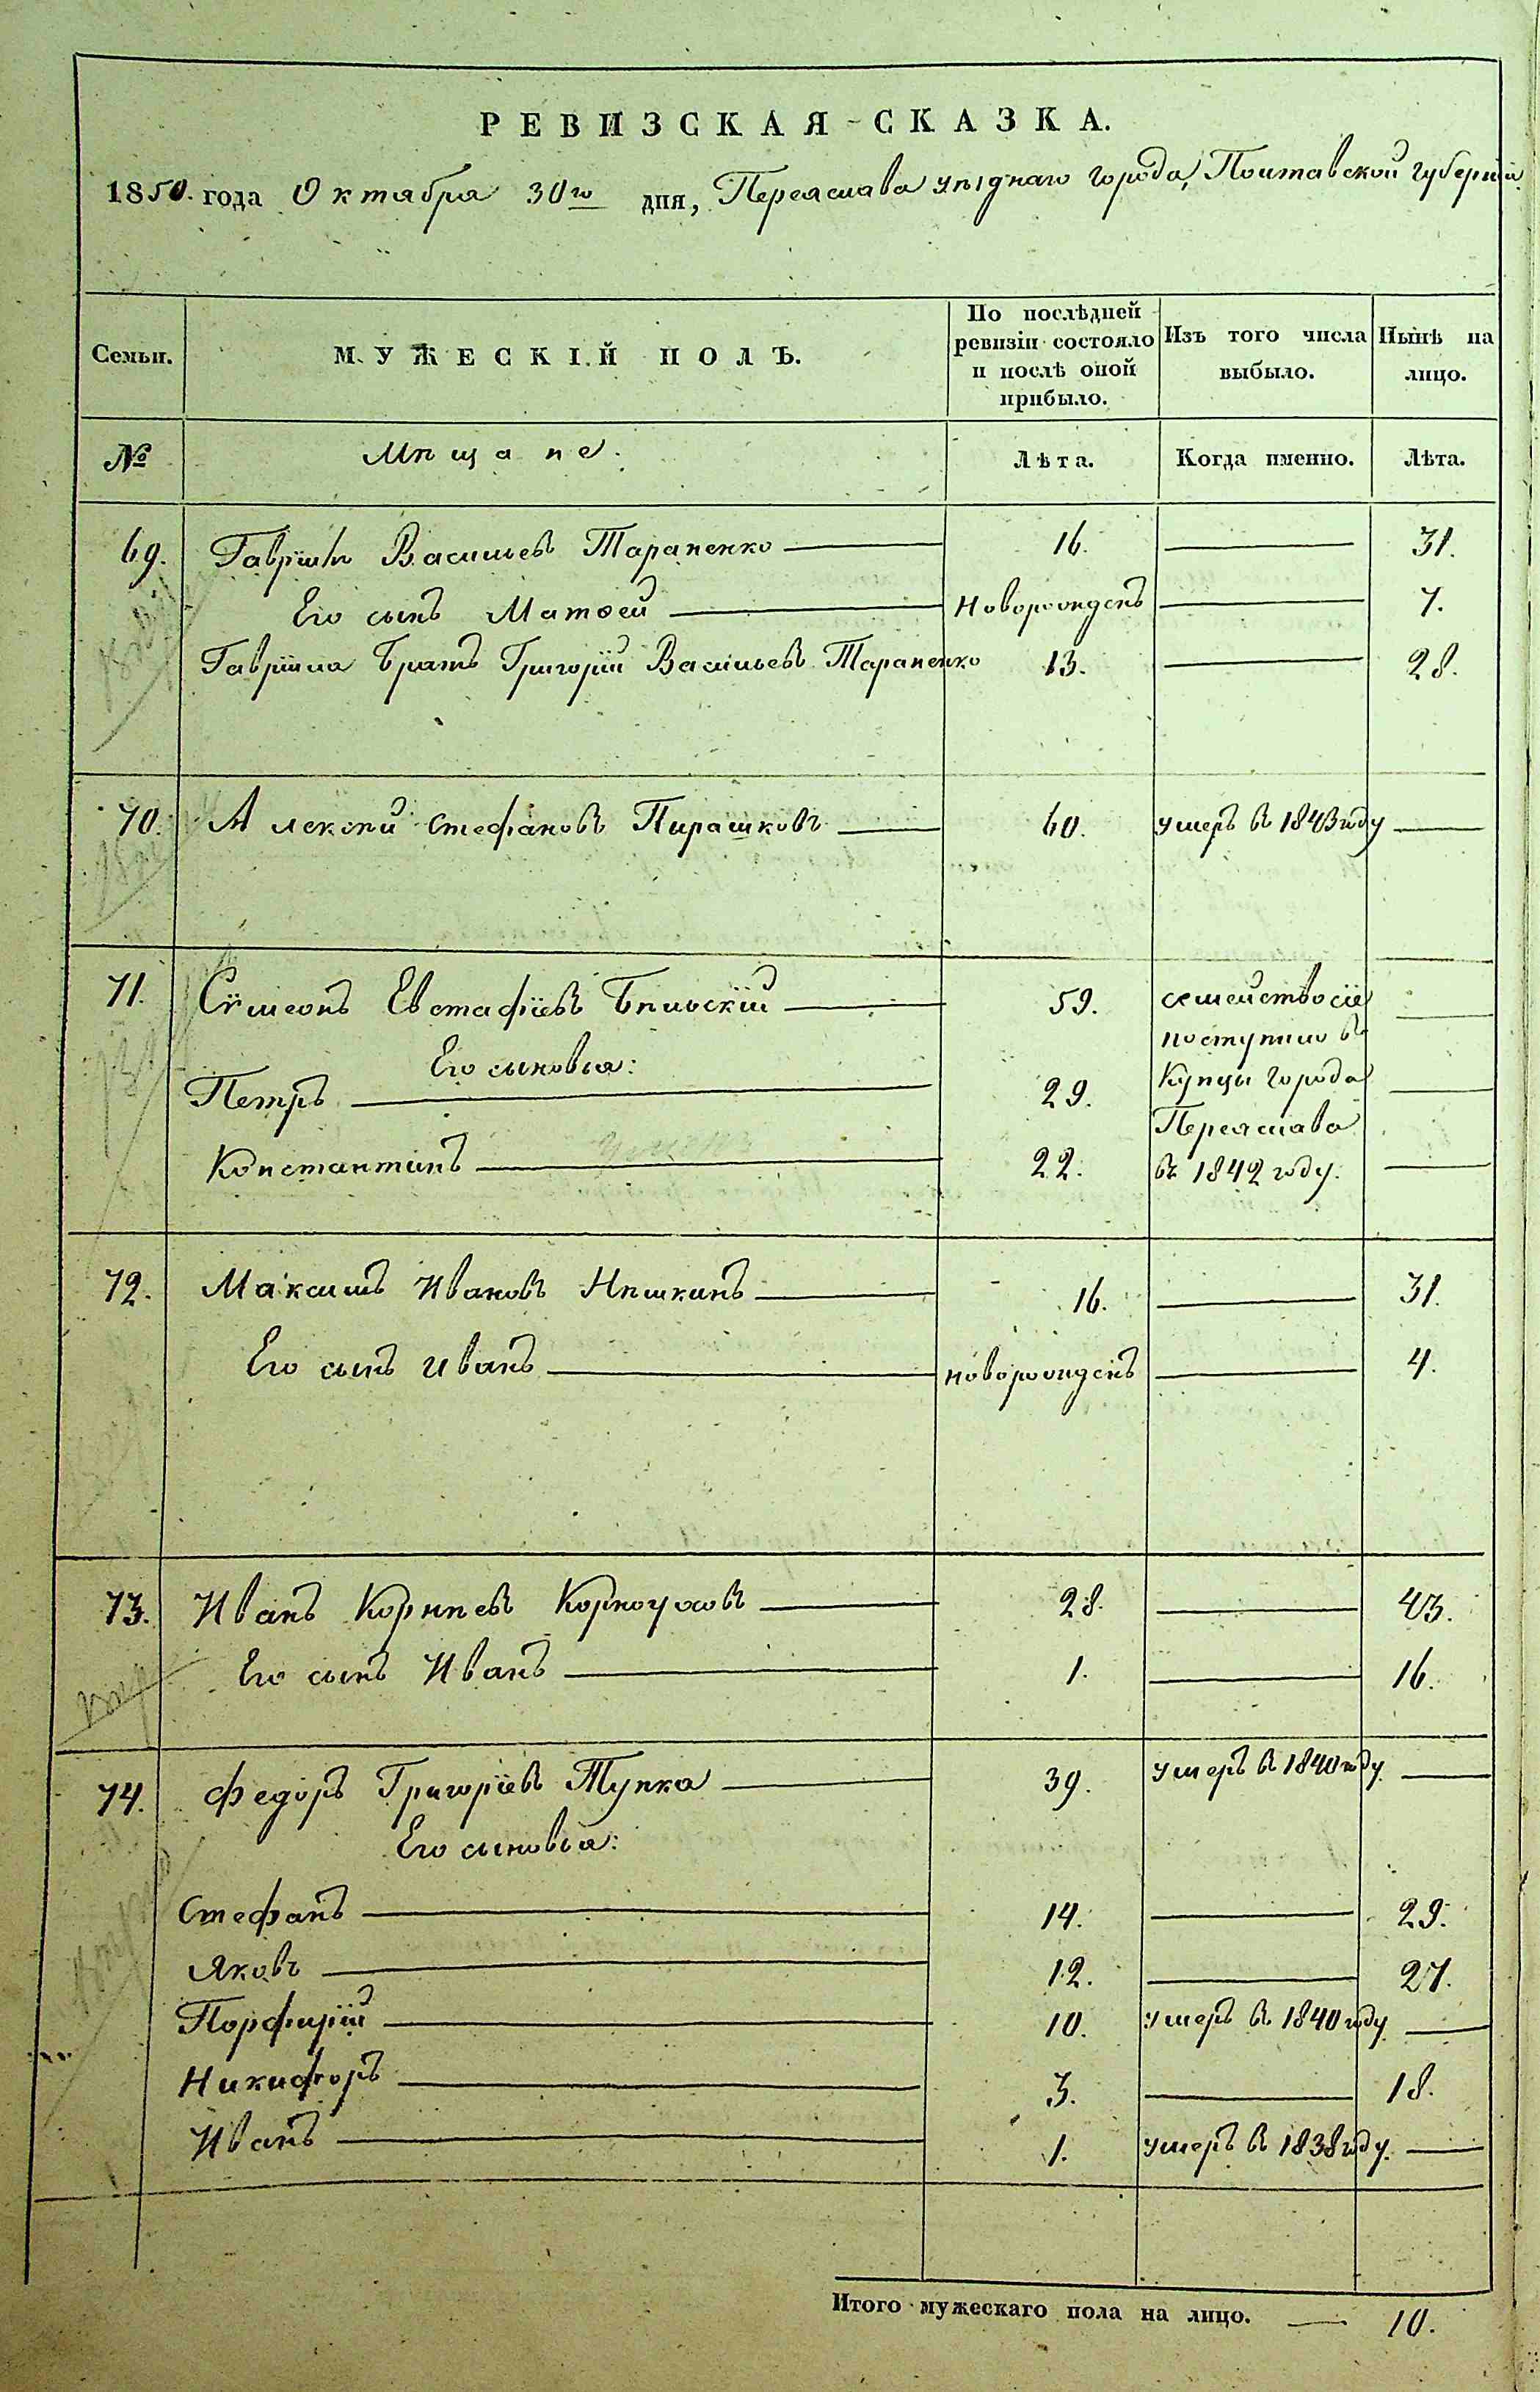 РЕВИЗСКАЯ СКАЗКА.
1850. года Октября 30го дня, Переяслава уѣзднаго города, Полтавской губерніи
Семьи. МУЖЕСКІЙ ПОЛЪ. По послѣдней ревизіи состояло и послѣ оной прибыло. Изъ того числа выбыло. Нынѣ на лицо.
№ Мѣщане. Лѣта. Когда именно. Лѣта.
69. Гавріилъ Васильевъ Тараненко 16. 31.
Его сынъ Матвей Новорожденъ 7.
Гавріила братъ Григорій Васильевъ Тараненко 13. 28.
70. Алексѣй Стефановъ Пирашковъ 60. умеръ въ 1843 году
71. Сѵмеонъ Евстафіевъ Бѣльскій 59. семейство сіе
поступило въ
Его сыновья:
Петръ 29. Купцы города
Переяслава
Константинъ 22. въ 1842 году.
72. Максимъ Ивановъ Нѣшкинъ 16. 31.
Его сынъ Иванъ новорожденъ 4.
73. Иванъ Корнѣевъ Корноуховъ 28. 43.
Его сынъ Иванъ 1. 16.
74. Федоръ Григоріевъ Тупка 39. умеръ въ 1840 году.
Его сыновья:
Стефанъ 14. 29.
Яковъ 12. 27.
Порфирій 10. умеръ въ 1840 году
Никифоръ 3. 18.
Иванъ 1. умеръ въ 1838 году.
Итого мужескаго пола на лицо. 10.